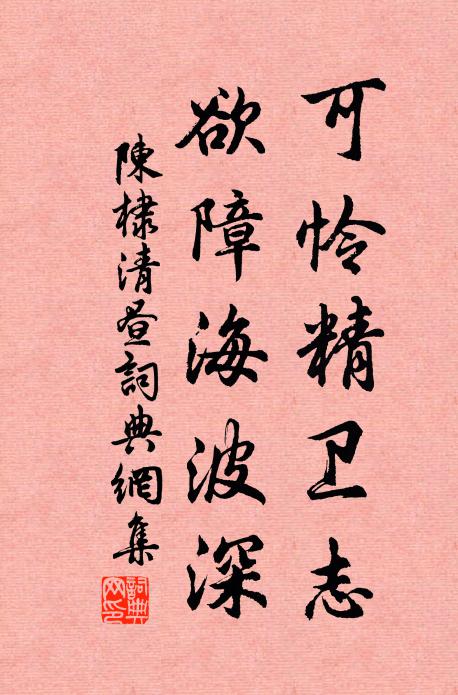 可怜精卫志
欲障海波深
陳棣清昼詞典網集
詞典网印